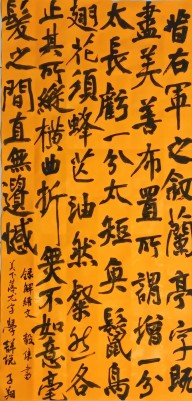 昔右軍之叙蘭亭字既
盡美善布置所謂增一分
太長虧一分太短魚鬣鳥
翅花須蜂芒油然粲然各
止其所縱横曲折无不如意毫
髮之間直無遺憾
錄解縉文
美下落尤字